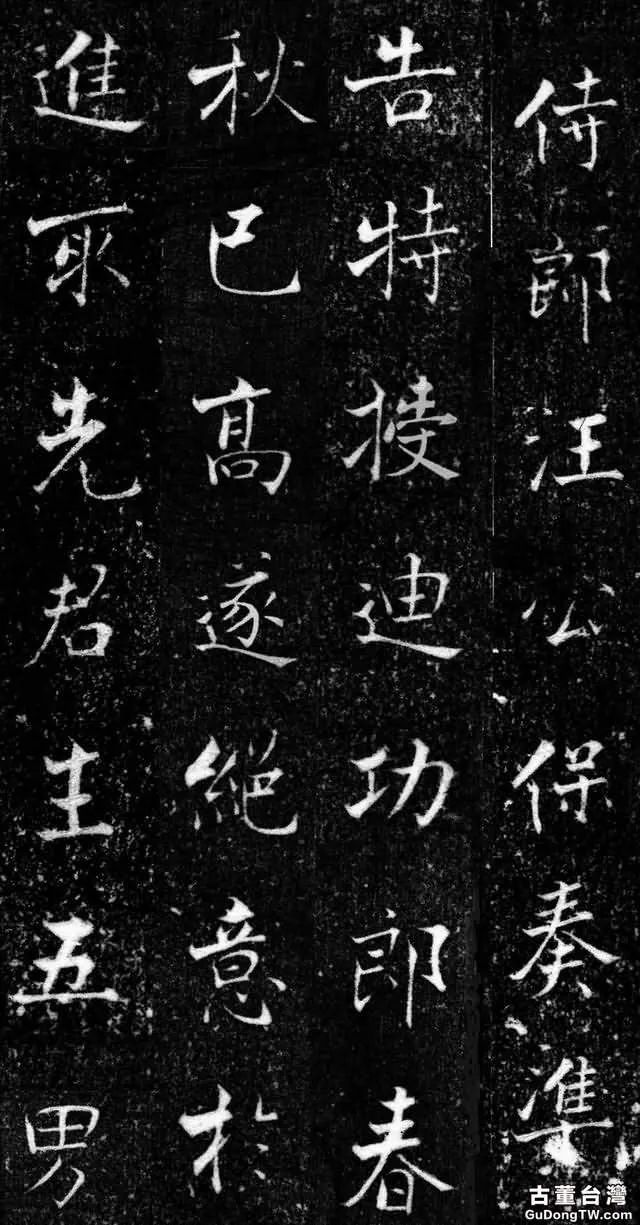 侍郎汪公保奏準
告特授迪功郎春
秋已高遂絕意於
進取先君生五男
古董台灣
GuDongTW.com